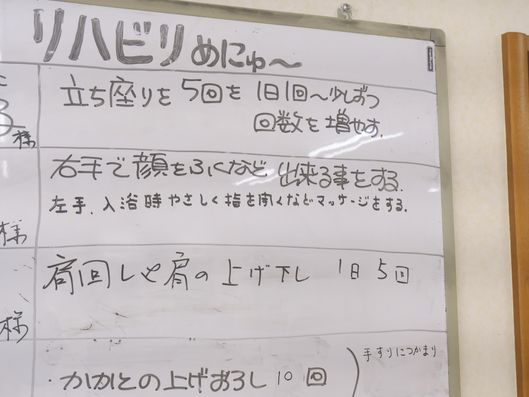 リハビリめにゅ〜
様
立ち座りを 5回を 1日1回〜少しずつ
回数を増やす.
右手で顔をふくなど 出来る事をする.
左手.入浴時やさしく指を開くなどマッサージをする.
様
肩回しや肩の上げ下し 1日 5回
様
・かかとの上げおろし 10回
手すりにつかまり